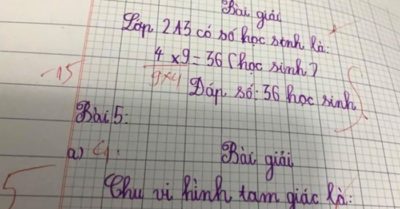 Bài giải
Lớp 2A3 có số học sinh là:
4 x 9 = 36 (học sinh)
9 x 4
Đáp số: 36 học sinh
Bài 5:
a)
Bài giải
Chu vi hình tam giác là: